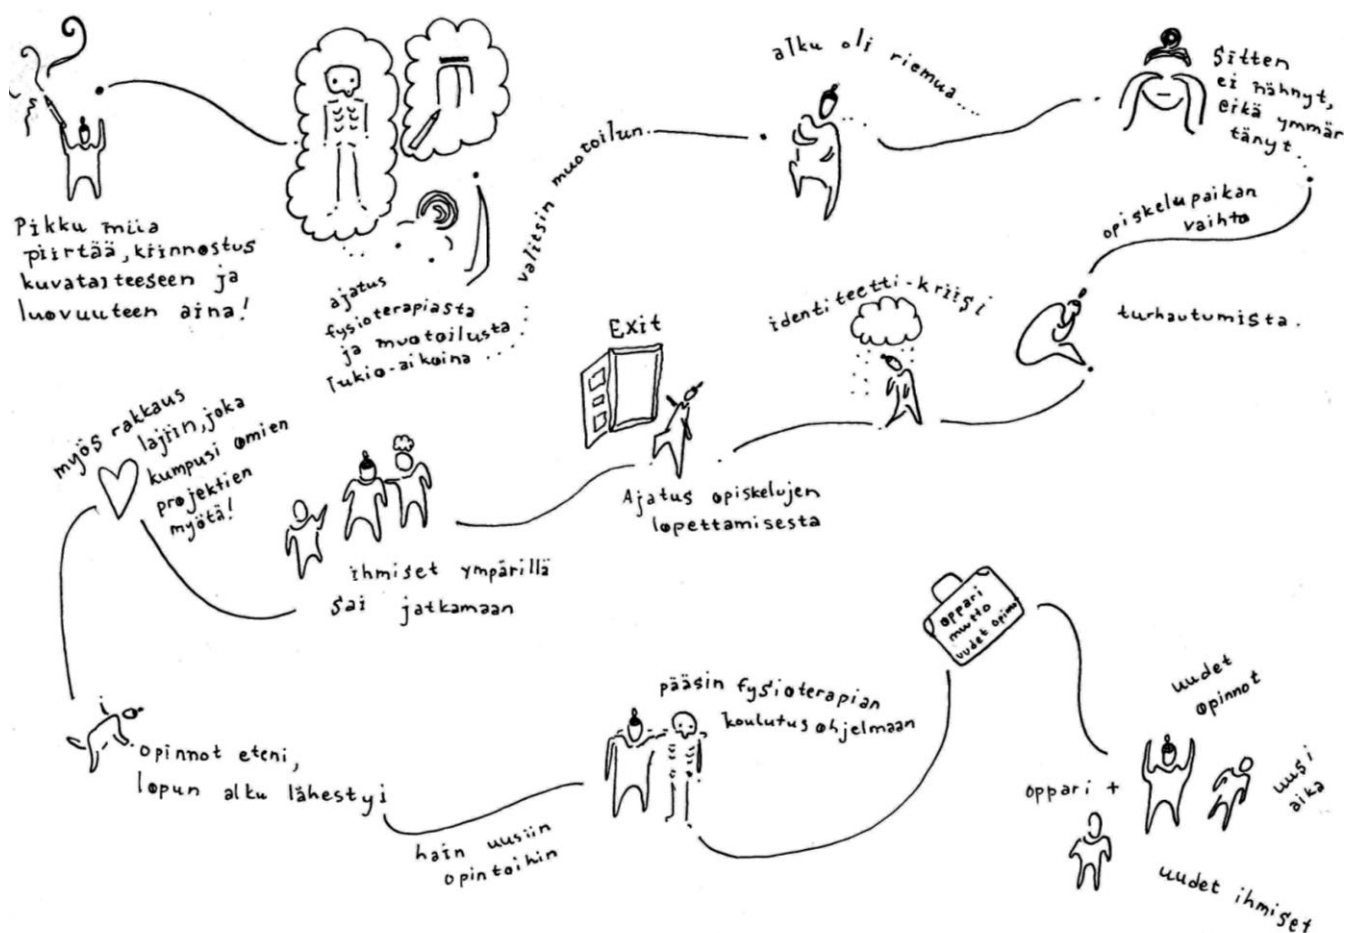 Pikku miia
piirtää, kiinnostus
kuvataiteeseen ja
luovuuteen aina!
ajatus
fysioterapiasta
ja muotoilusta
lukio-aikoina ....
valitsin muotoilun
alku oli riemua....
Sitten
ei nähnyt,
eikä ymmär
tänyt...
opiskelupaikan
vaihto
turhautumista.
identiteetti-kriisi
Exit
Ajatus opiskelujen
lopettamisesta
ihmiset ympärillä
sai jatkamaan
myös rakkaus
lajiin, joka
kumpusi omien
projektien
myötä!
opinnot eteni,
lopun alku lähestyi
hain uusiin
opintoihin
pääsin fysioterapian
koulutusohjelmaan
oppari
muutto
uudet
uudet
opinnot
oppari +
uusi
aika
uudet ihmiset